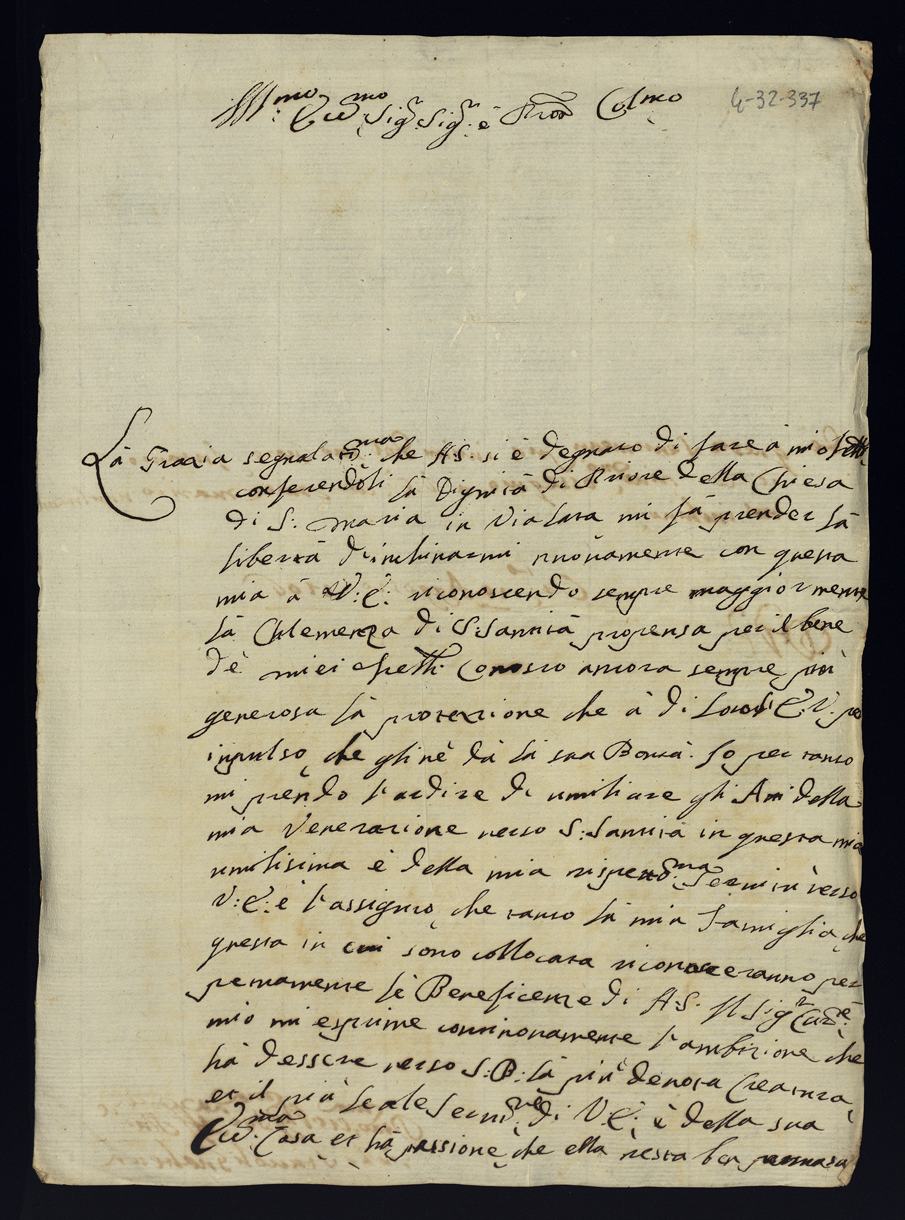 Ill.mo Ecc.mo Sig.r Sig.r e Pron Col.mo
4-32-337
Là Grazia segnalatis.ma che N.S. si è degnato di fare à mio fratt.
conferendoli là Dignità di Priore della Chiesa
di S. Maria in Via Lata mi fà prender là
libertà d'inchinarmi nuovamente con questa
mia à V.E. riconoscendo sempre maggiormente
là Clemenza di S. Santità propensa per il bene
dè miei fratti. Conosco ancora sempre più
generosa là protezione che à di loro V.E. per
inpulso, che gli nè dà là sua Bontà. Io per tanto
mi prendo l'ardire di umiliare gli Atti della
mia Venerazione verso S. Santità in questa mia
umilisima è della mia rispett.ma Servitù verso
V.E. è l'assiguro, che tanto là mia Famiglia che
questa in cui sono collocata riconosceranno per
petuamente lè Beneficenze di N.S. Il Sig.r Car.e
mio mi esprime continovamente l'ambizione che
hà d'essere verso S.B. là più devota Creatura,
et il più leale Servit.re di V.E. è della sua
Ecc.ma Casa et hà passione, che ella resta ben persuasa